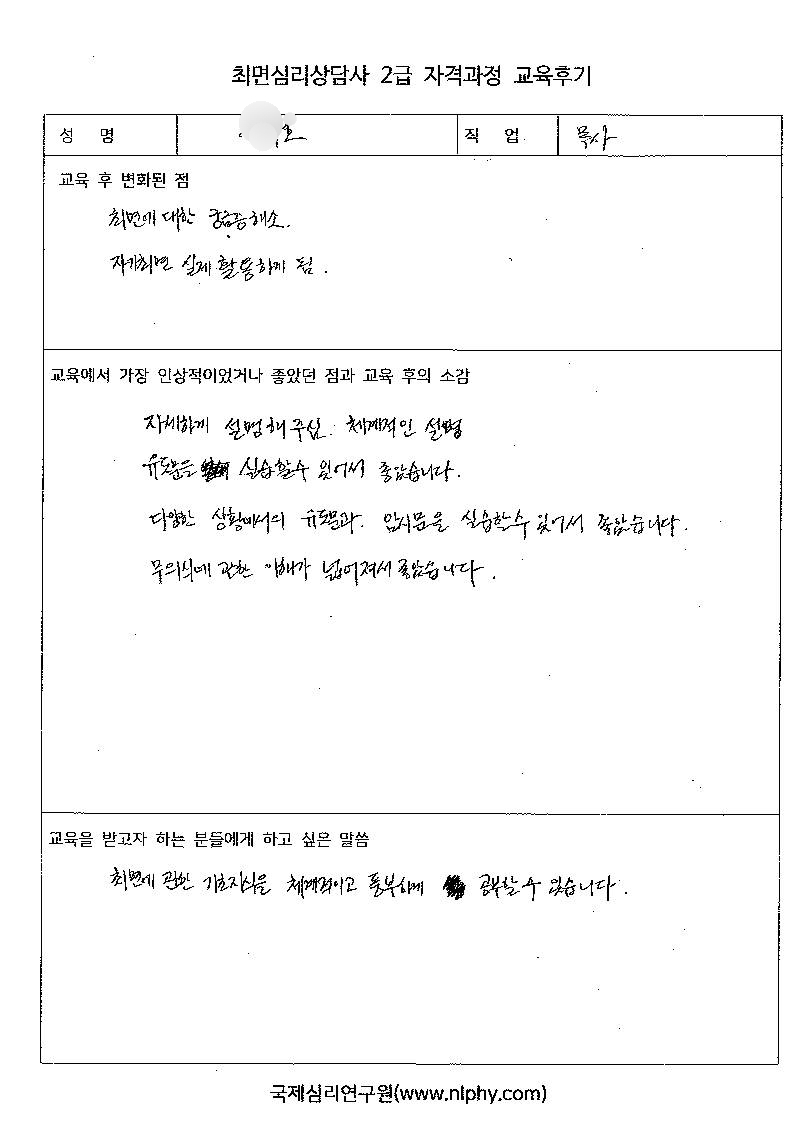 최면심리상담사 2급 자격과정 교육후기
성 명 호 직 업 목사
교육 후 변화된 점
최면에 대한 궁금증해소.
자기최면 실제 활용하게 됨.
교육에서 가장 인상적이었거나 좋았던 점과 교육 후의 소감
자세하게 설명해주심. 체계적인 설명
유도문을 실습할수 있어서 좋았습니다.
다양한 상황에서의 유도문과. 암시문을 실습할수 있어서 좋았습니다.
무의식에 관한 이해가 넓어져서 좋았습니다.
교육을 받고자 하는 분들에게 하고 싶은 말씀
최면에 관한 기초지식을 체계적이고 풍부하게 공부할수 있습니다.
국제심리연구원(www.nlphy.com)